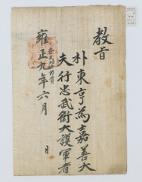 教旨
朴東亨為嘉善大
夫行忠武衛大護軍者
雍正九年六月 日